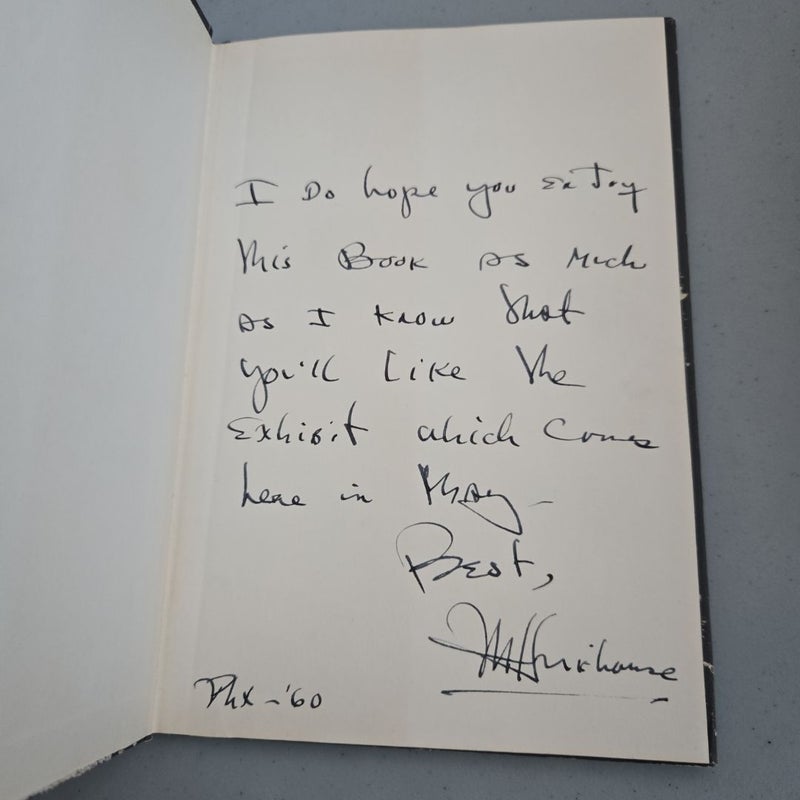 I Do hope you enjoy
this Book as Much
as I know that
you'll like the
Exhibit which comes
here in May –
Best,
Phx – '60